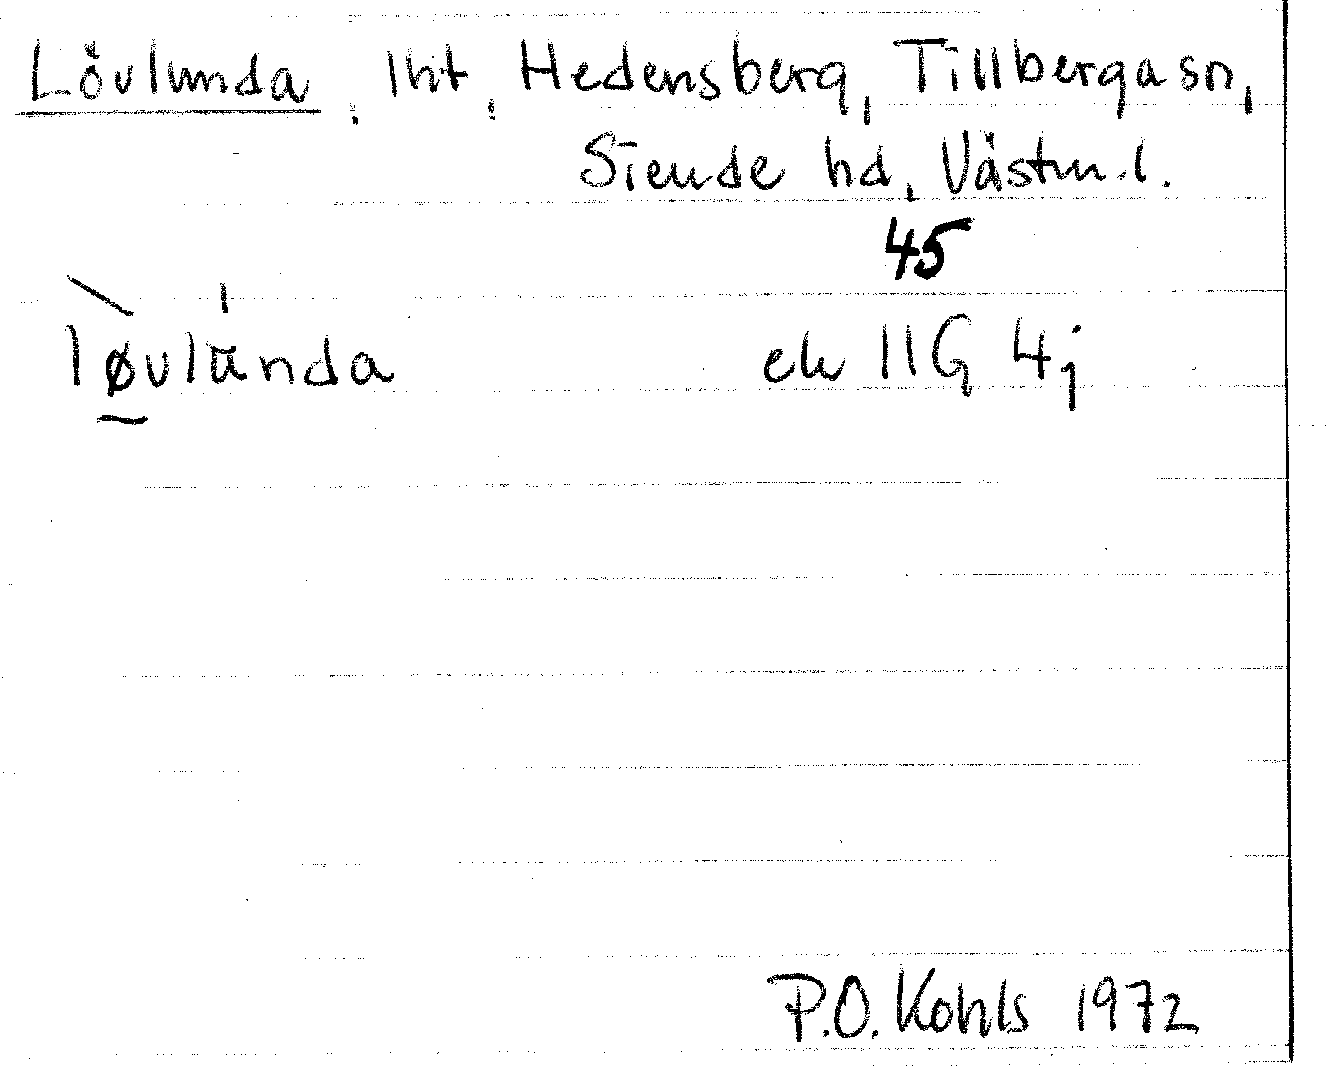 Lövlunda, lht, Hedensberg, Tillberga sn,
Siende hd, Västm.l.
45
løvlu̇nda ek 11G 4j
P.O. Kohls 1972